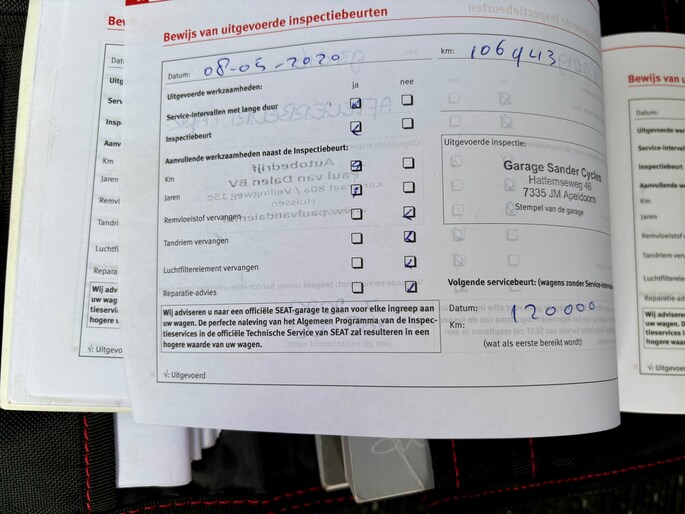 Bewijs van uitgevoerde inspectiebeurten
Datum: 08-05-2020
km: 106443
Uitgevoerde werkzaamheden: ja nee
Service-intervallen met lange duur
Inspectiebeurt
Aanvullende werkzaamheden naast de Inspectiebeurt:
Km
Jaren
Remvloeistof vervangen
Tandriem vervangen
Luchtfilterelement vervangen
Reparatie-advies
Wij adviseren u naar een officiële SEAT-garage te gaan voor elke ingreep aan
uw wagen. De perfecte naleving van het Algemeen Programma van de Inspec-
tieservices in de officiële Technische Service van SEAT zal resulteren in een
hogere waarde van uw wagen.
√: Uitgevoerd
Uitgevoerde inspectie:
Garage Sander Cycles
Hattemseweg 46
7335 JM Apeldoorn
Stempel van de garage
Volgende servicebeurt: (wagens zonder Service-interval
Datum:
Km: 120000
(wat als eerste bereikt wordt)
Bewijs van
Datum:
Uitgevoerde werk
Service-intervallen
Inspectiebeurt
Aanvullende werkz
Km
Jaren
Remvloeistof verva
Tandriem vervangen
Luchtfilterelement
Reparatie-advies
Wij adviseren u naar
uw wagen. De perfe
tieservices in de off
hogere waarde van
√: Uitgevoerd
Bewijs
Datum:
Uitg
Serv
Inspe
Aanv
Km
Jaren
Remvl
Tandri
Luchtfi
Reparatie
Wij advise
uw wagen
tieservice
hogere w
√: Uitgevo